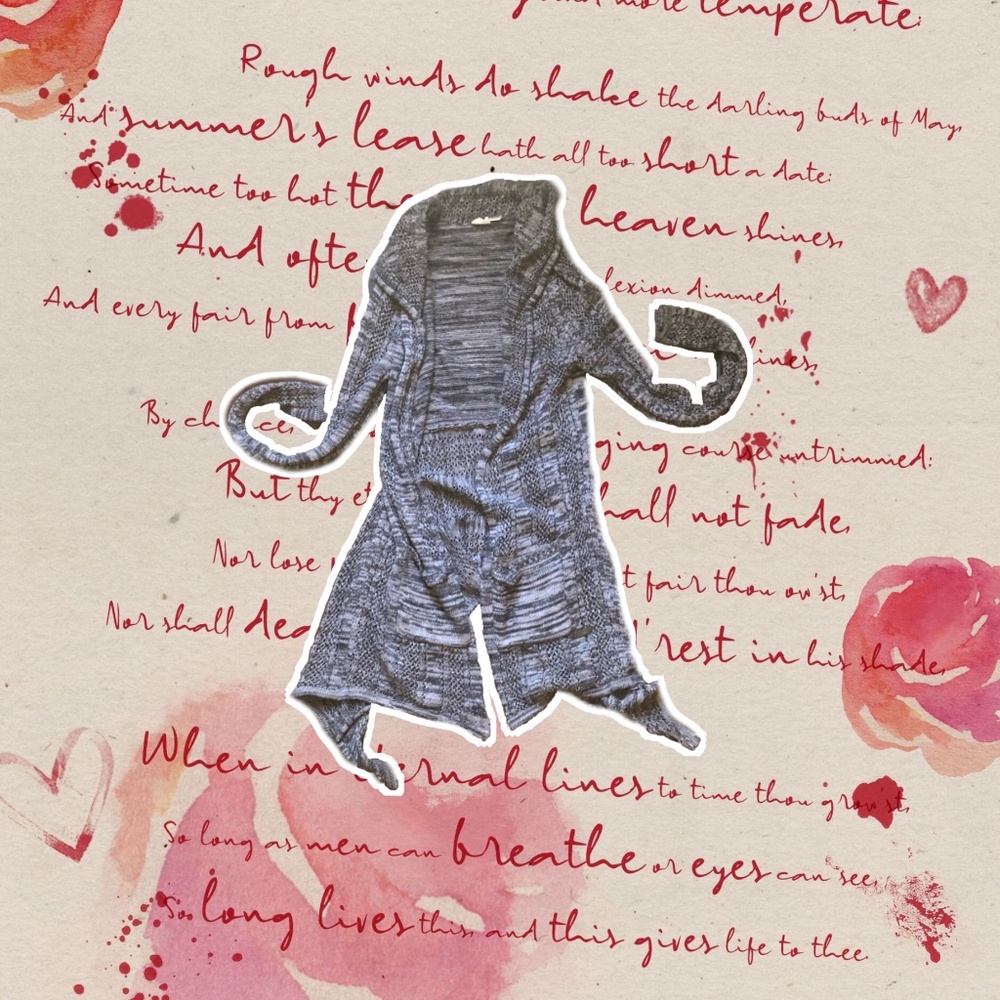 more temperate:
Rough winds do shake the darling buds of May,
And summer's lease hath all too short a date:
Sometime too hot the heaven shines,
And ofte lexion dimmed,
And every fair from lines,
By ch ce, ging course untrimmed:
But thy et hall not fade,
Nor lose t fair thou ow'st,
Nor shall dea 'rest in his shade,
When in ernal lines to time thou grow'st,
So long as men can breathe or eyes can see,
So long lives this, and this gives life to thee.